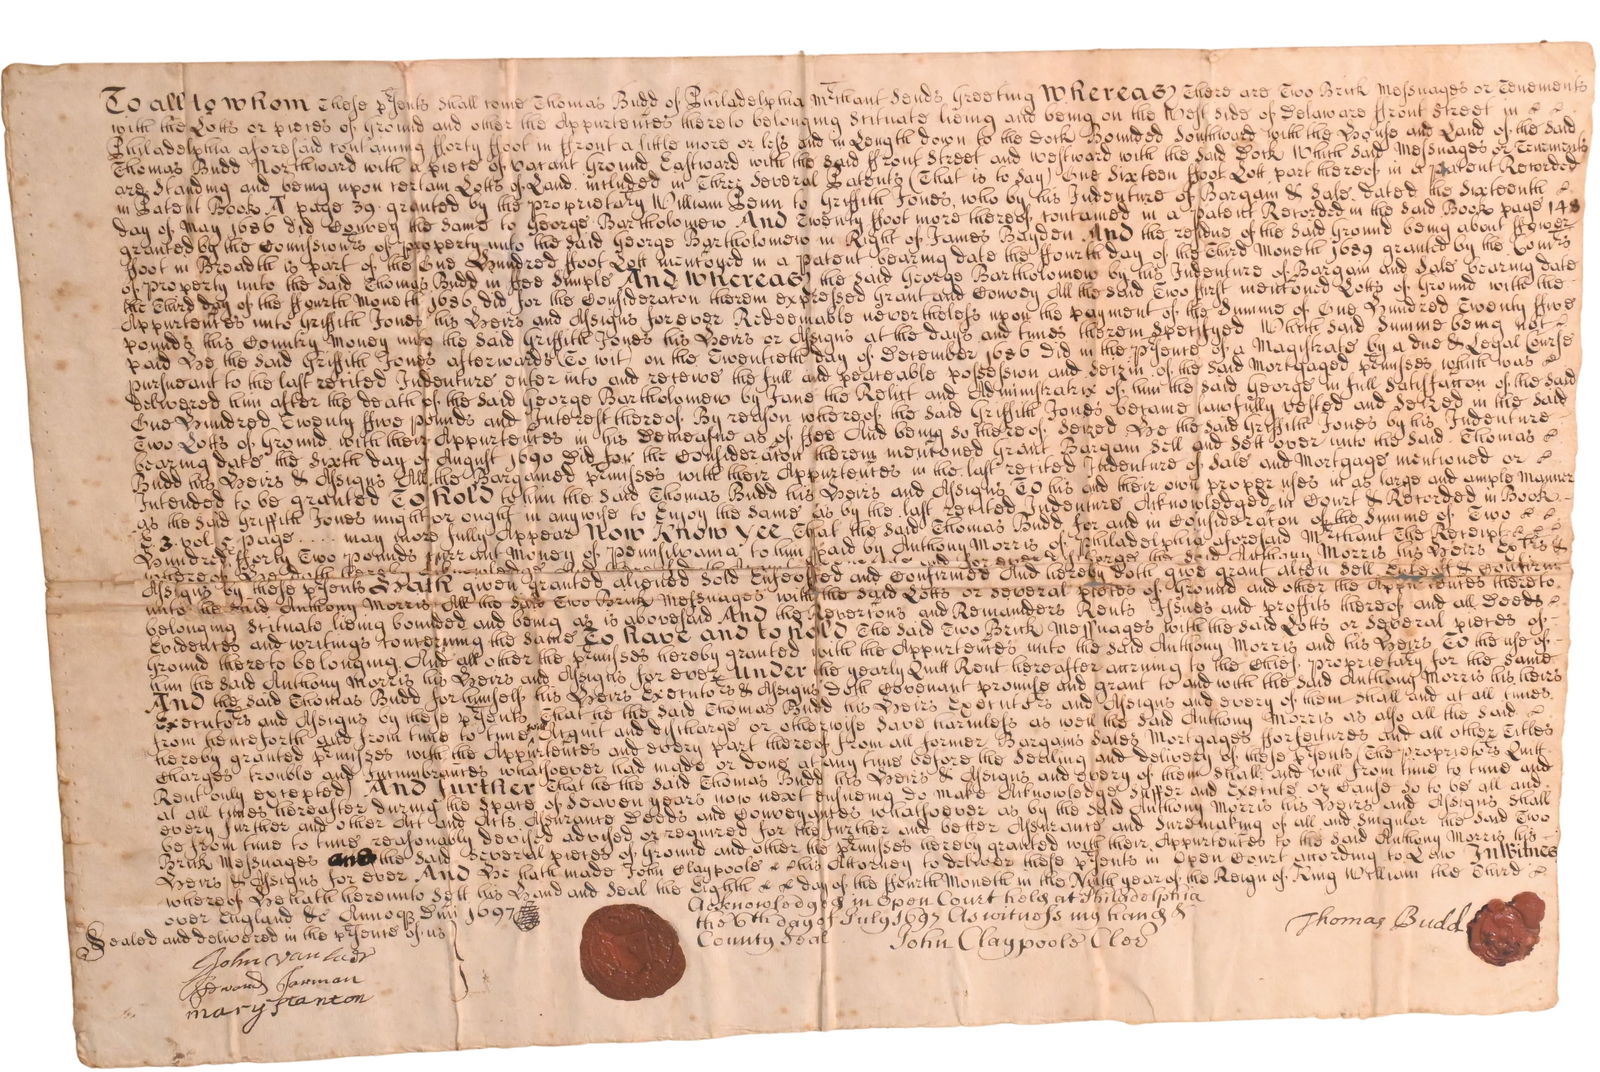 To all to whom These p'sents shall come Thomas Budd of Philadelphia M'chant Sends Greeting Whereas There are Two Brick Messuages or Tenements
with the Lotts or pieces of Ground and other the Appurtences thereto belonging Scituate lieing and being on the West side of Delaware ffront Street in
Philadelphia aforesaid containing fforty ffoot in ffront a little more or less and in Length down to the Dock Bounded Southward with the House and Land of the said
Thomas Budd Northward with a piece of vacant Ground Eastward with the said ffront Street and Westward with the said Dock Which said Messuages or Tenements
are Standing and being upon certain Lotts of Land included in Three Several Patents (That is to say) One Sixteen ffoot Lott part thereof in a Patent Recorded
in Patent Book A page 39 granted by the Proprietary William Penn to Griffith Jones who by his Indenture of Bargain & Sale dated the Sixteenth
day of May 1686 did Convey the same to George Bartholomew And Twenty ffoot more thereof contained in a Patent Recorded in the said Book page 148
granted by the Comissioners of Property unto the said George Bartholomew in Right of James Bayden And the residue of the said Ground being about ffower
ffoot in Breadth is part of the One Hundred ffoot Lott mentioned in a Patent bearing date the ffourth day of the Third Moneth 1689 granted by the Comrs
of Property unto the said Thomas Budd in ffee Simple And Whereas the said George Bartholomew by his Indenture of Bargain and Sale bearing date
the Third day of the ffourth Moneth 1686 did for the Consideraton therein expressed grant and Convey All the said Two first mentioned Lotts of Ground with the
Appurtences unto Griffith Jones his Heirs and Assigns forever Redeemable nevertheless upon the payment of the Summe of One Hundred Twenty ffive
pounds this Country Money unto the said Griffith Jones his Heirs or Assigns at the days and times therein Specifyed Which said Summe being not
paid He the said Griffith Jones afterwards To wit on the Twentieth day of December 1686 did in the p'sence of a Magistrate by a due & Legal Course
pursueant to the last recited Indenture enter into and receive the full and peaceable possession and Seizin of the said Mortgaged p'misses which was
delivered him after the death of the said George Bartholomew by Jane the Relict and Administratrix of him the said George in full Satisfaction of the said
One Hundred Twenty ffive pounds and Interest thereof By reason whereof the said Griffith Jones became lawfully vested and Seized in the said
Two Lotts of Ground with their Appurtences in his Demeasne as of ffee And being so thereof Seized He the said Griffith Jones by his Indenture
bearing date the Sixth day of August 1690 did for the Consideraton therein mentioned Grant Bargain Sell and Sett over unto the said Thomas
Budd his Heirs & Assigns All the Bargained p'misses with their Appurtences in the last recited Indenture of Sale and Mortgage mentioned or
Intended to be granted To hold to him the said Thomas Budd his Heirs and Assigns To his and their own proper uses in as large and ample Manner
as the said Griffith Jones might or ought in any wise to Enjoy the same as by the last recited Indenture Acknowledged in Court & Recorded in Book
E 3 vol 5 Page ...... may more fully Appear Now Know Yee That the said Thomas Budd for and in Consideraton of the Summe of Two
Hundred fforty Two pounds Currant Money of Pennsilvania to him paid by Anthony Morris of Philadelphia aforesaid M'chant The Receipt
whereof He doth hereby the said Anthony Morris his Heirs Extrs &
Assigns by these p'sents Hath given granted aliened sold Enfeoffed and Confirmed And hereby doth give grant alien sell Enfeoff & Confirm
unto the said Anthony Morris All the said Two Brick Messuages with the said Lotts or Several pieces of Ground and other the Appurtences thereto
belonging Scituate lieing bounded and being as is abovesaid And the Revertons and Remainders Rents Issues and proffits thereof and all Deeds
Evidences and writings concerning the same To have and to hold The said Two Brick Messuages with the said Lotts or Several pieces of
Ground thereto belonging And all other the p'misses hereby granted with the Appurtences unto the said Anthony Morris and his Heirs To the use of
him the said Anthony Morris his Heirs and Assigns for ever Under the yearly Quitt Rent hereafter accruing to the Chief Proprietary for the same
And the said Thomas Budd for himself his Heirs Executors & Assigns doth Covenant promise and grant to and with the said Anthony Morris his heirs
Executors and Assigns by these p'sents That he the said Thomas Budd his Heirs Executors and Assigns and every of them shall and at all times
from henceforth and from time to time well Acquit and discharge or otherwise save harmless as well the said Anthony Morris as also all the said
hereby granted p'misses with the Appurtences and every part thereof from all former Bargains Sales Mortgages fforfeitures and all other Titles
Charges trouble and Incumbrances whatsoever had made or done at any time before the Sealing and delivery of these p'sents (The Proprietors Quitt
Rent only excepted) And further That he the said Thomas Budd his Heirs & Assigns and every of them shall and will from time to time and
at all times hereafter during the Space of Seaven years now next ensueing do make Acknowledge Suffer and Execute or Cause so to be all and
every further and other Act and Acts Assurance Deeds and Conveyances whatsoever as by the said Anthony Morris his Heirs and Assigns shall
be from time to time reasonably devised advised or required for the further and better Assurance and Suremaking of all and Singular the said Two
Brick Messuages and the said Several pieces of Ground and other the p'misses hereby granted with their Appurtences to the said Anthony Morris his
Heirs & Assigns for ever And He hath made John Claypoole his Attorney to deliver these p'sents in Open Court according to Law In Witness
whereof He hath hereunto Sett his Hand and Seal the Eighth day of the ffourth Moneth in the Ninth year of the Reign of King William the Third
over England &c Annoq Dni 1697
Acknowledged in Open Court held at Philadelphia
the 6th day of July 1697 As witness my hand &
County Seal John Claypoole Cler
Thomas Budd
Sealed and delivered in the p'sence of us
John Van
Edward Jarman
mary stanton